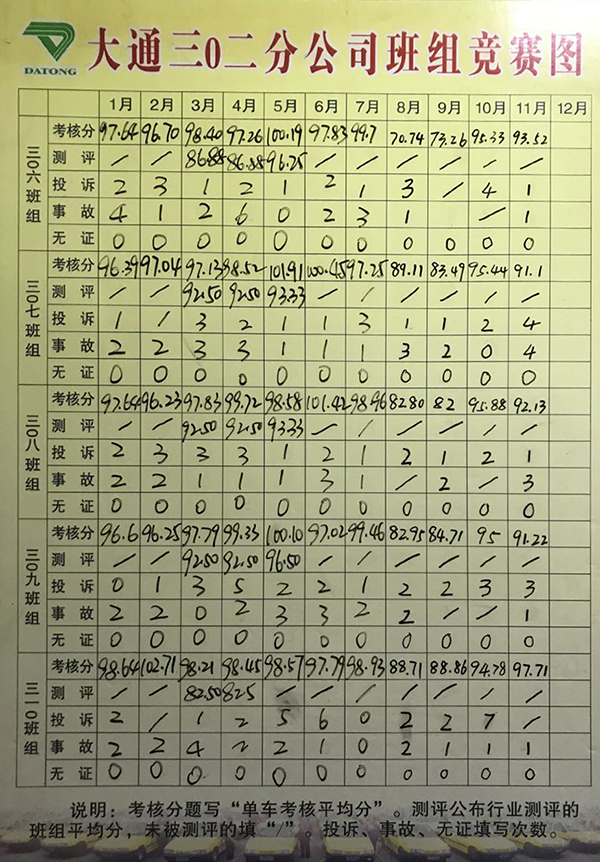 DATONG
大通三0二分公司班组竞赛图
1月 2月 3月 4月 5月 6月 7月 8月 9月 10月 11月 12月
三〇六班组
考核分 97.64 96.70 98.40 97.26 100.19 97.83 99.7 70.74 73.26 95.33 93.52
测评 / / 86.88 86.88 96.25 / / / / / /
投诉 2 3 1 2 1 2 1 3 / 4 1
事故 4 1 2 6 0 2 3 1 / 1
无证 0 0 0 0 0 0 0 0 0 0 0
三〇七班组
考核分 96.39 97.04 97.13 98.52 101.91 100.45 97.25 89.11 83.49 95.44 91.1
测评 / / 92.50 92.50 93.33 / / / / / /
投诉 1 / 3 2 1 1 3 1 1 2 4
事故 2 2 3 3 1 1 1 3 2 0 4
无证 0 0 0 0 0 0 0 0 0 0 0
三〇八班组
考核分 97.64 96.23 97.83 99.72 98.58 101.42 98.96 82.80 82 95.88 92.13
测评 / / 92.50 92.50 93.33 / / / / / /
投诉 2 3 3 3 1 2 1 2 1 2 1
事故 2 2 1 1 1 3 1 / 2 / 3
无证 0 0 0 0 0 0 0 0 0 0 0
三〇九班组
考核分 96.6 96.25 97.79 99.33 100.10 97.02 99.46 82.95 84.71 95 91.22
测评 / / 92.50 92.50 96.50 / / / / / /
投诉 0 1 3 5 2 2 1 2 2 3 3
事故 2 2 0 2 3 3 2 2 / / 1
无证 0 0 0 0 0 0 0 0 0 0 0
三一〇班组
考核分 98.64 102.71 98.21 98.45 98.57 97.79 98.93 88.71 88.86 94.78 97.71
测评 / / 82.50 82.5 / / / / / / /
投诉 2 / 1 2 5 6 0 2 2 7 /
事故 2 2 4 2 2 1 0 2 1 1 1
无证 0 0 0 0 0 0 0 0 0 0 0
说明：考核分题写“单车考核平均分”。测评公布行业测评的
班组平均分，未被测评的填“/”。投诉、事故、无证填写次数。